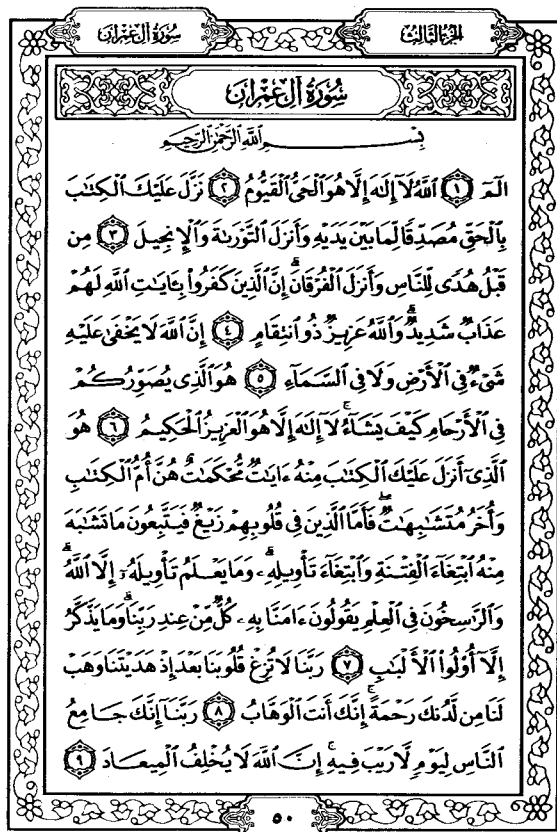 الجزء الثالث
سورة آل عمران
سُورَةُ آلِ عِمْرَانَ
بِسْمِ اللَّهِ الرَّحْمَٰنِ الرَّحِيمِ
الٓمٓ ١ اللَّهُ لَآ إِلَٰهَ إِلَّا هُوَ الْحَيُّ الْقَيُّومُ ٢ نَزَّلَ عَلَيْكَ الْكِتَٰبَ
بِالْحَقِّ مُصَدِّقًا لِّمَا بَيْنَ يَدَيْهِ وَأَنزَلَ التَّوْرَىٰةَ وَالْإِنجِيلَ ٣ مِن
قَبْلُ هُدًى لِّلنَّاسِ وَأَنزَلَ الْفُرْقَانَ ۗ إِنَّ الَّذِينَ كَفَرُوا۟ بِـَٔايَٰتِ اللَّهِ لَهُمْ
عَذَابٌ شَدِيدٌ ۗ وَاللَّهُ عَزِيزٌ ذُو انتِقَامٍ ٤ إِنَّ اللَّهَ لَا يَخْفَىٰ عَلَيْهِ
شَىْءٌ فِى الْأَرْضِ وَلَا فِى السَّمَآءِ ٥ هُوَ الَّذِى يُصَوِّرُكُمْ
فِى الْأَرْحَامِ كَيْفَ يَشَآءُ ۚ لَآ إِلَٰهَ إِلَّا هُوَ الْعَزِيزُ الْحَكِيمُ ٦ هُوَ
الَّذِىٓ أَنزَلَ عَلَيْكَ الْكِتَٰبَ مِنْهُ ءَايَٰتٌ مُّحْكَمَٰتٌ هُنَّ أُمُّ الْكِتَٰبِ
وَأُخَرُ مُتَشَٰبِهَٰتٌ ۖ فَأَمَّا الَّذِينَ فِى قُلُوبِهِمْ زَيْغٌ فَيَتَّبِعُونَ مَا تَشَٰبَهَ
مِنْهُ ابْتِغَآءَ الْفِتْنَةِ وَابْتِغَآءَ تَأْوِيلِهِۦ ۗ وَمَا يَعْلَمُ تَأْوِيلَهُۥٓ إِلَّا اللَّهُ ۗ
وَالرَّٰسِخُونَ فِى الْعِلْمِ يَقُولُونَ ءَامَنَّا بِهِۦ كُلٌّ مِّنْ عِندِ رَبِّنَا ۗ وَمَا يَذَّكَّرُ
إِلَّآ أُو۟لُوا۟ الْأَلْبَٰبِ ٧ رَبَّنَا لَا تُزِغْ قُلُوبَنَا بَعْدَ إِذْ هَدَيْتَنَا وَهَبْ
لَنَا مِن لَّدُنكَ رَحْمَةً ۚ إِنَّكَ أَنتَ الْوَهَّابُ ٨ رَبَّنَآ إِنَّكَ جَامِعُ
النَّاسِ لِيَوْمٍ لَّا رَيْبَ فِيهِ ۚ إِنَّ اللَّهَ لَا يُخْلِفُ الْمِيعَادَ ٩
٥٠